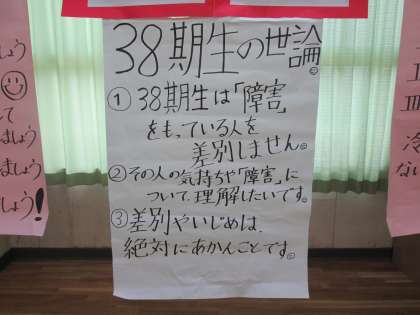 38期生の世論
① 38期生は「障害」
をもっている人を
差別しません。
② その人の気持ちや「障害」に
ついて、理解したいです。
③ 差別やいじめは、
絶対にあかんことです。
しょう
て
ましょう
ましょう
しょう!
ない